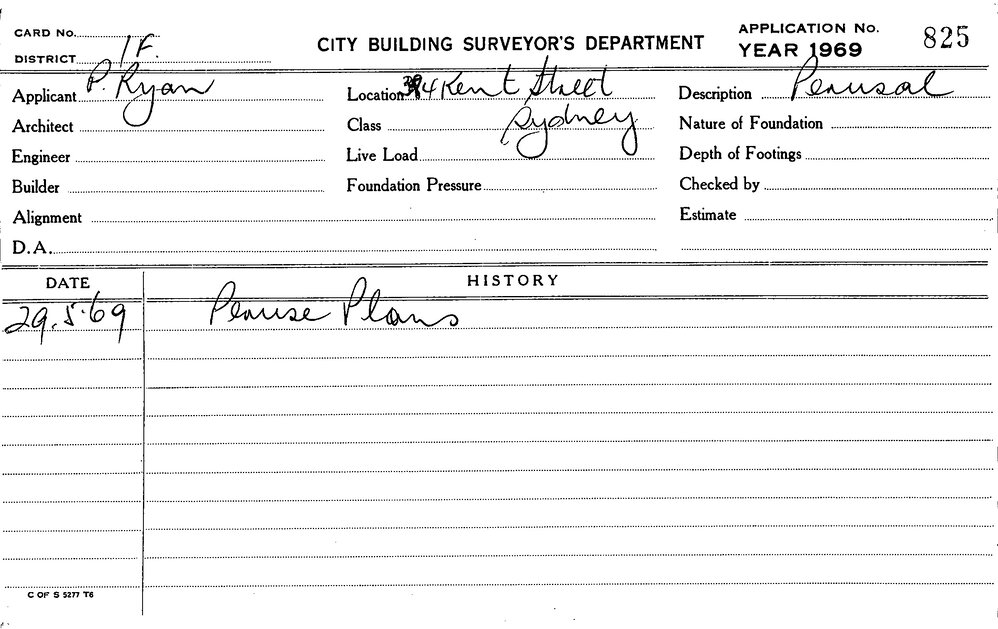 CARD No.
CITY BUILDING SURVEYOR'S DEPARTMENT
APPLICATION No. 825
YEAR 1969
DISTRICT 1F.
Applicant P. Ryan
Location 394 Kent Street
Description Perusal
Architect
Class Sydney
Nature of Foundation
Engineer
Live Load
Depth of Footings
Builder
Foundation Pressure
Checked by
Alignment
Estimate
D.A.
DATE HISTORY
29.5.69 Peruse Plans
C OF S 5277 T6